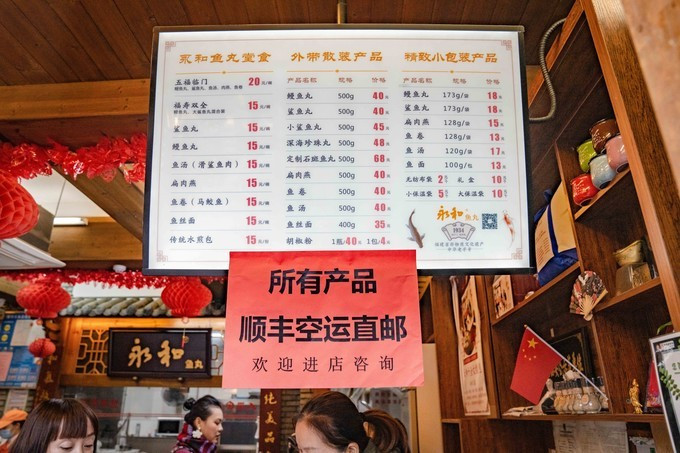 永和鱼丸堂食
五福临门 20元/碗
福寿双全 15元/碗
鲨鱼丸 15元/碗
鳗鱼丸 15元/碗
鱼汤（滑鲨鱼肉） 15元/碗
扁肉燕 15元/碗
鱼卷（马鲛鱼） 15元/碗
鱼丝面 15元/碗
传统水煎包 15元/碗
外带散装产品
产品名称 规格 价格
鳗鱼丸 500g 40元
鲨鱼丸 500g 40元
小鲨鱼丸 500g 45元
深海珍珠丸 500g 48元
定制石斑鱼丸 500g 68元
扁肉燕 500g 40元
鱼卷 500g 40元
鱼汤 500g 40元
鱼丝面 400g 35元
胡椒粉 1瓶/40元 1包/4元
精致小包装产品
产品名称 规格 价格
鳗鱼丸 173g/袋 18元
鲨鱼丸 173g/袋 18元
扁肉燕 128g/袋 15元
鱼卷 128g/袋 13元
鱼汤 120g/袋 17元
鱼面 100g/包 13元
无纺布袋 2元 礼盒 10元
小保温袋 5元 大保温袋 10元
永和鱼丸
1934
所有产品
顺丰空运直邮
欢迎进店咨询
永和鱼丸